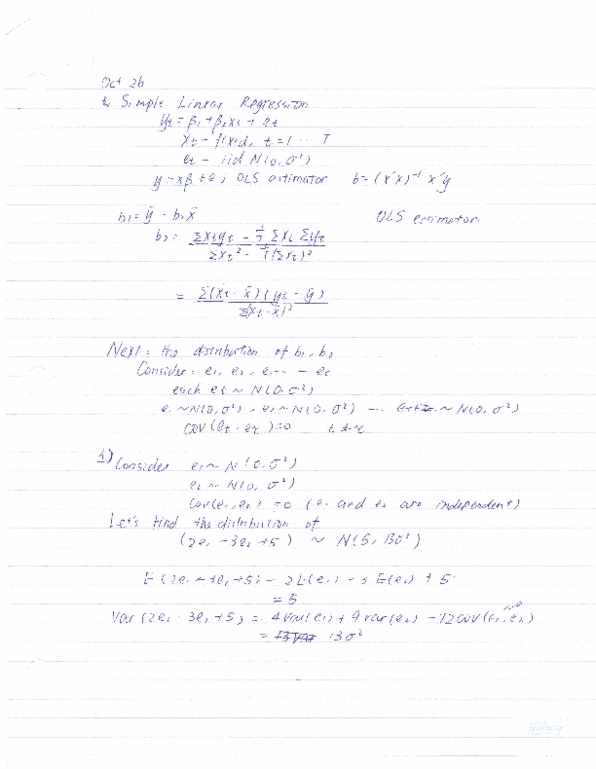 Oct 26
Simple Linear Regression
yt = β1 + β2xt + et
xt - fixed, t=1 ... T
et - iid N(0, σ²)
y = xβ + e; OLS estimator b = (x'x)⁻¹ x'y
b1 = ȳ - b2x̄ OLS estimator
b2 = Σxtyt - 1/T Σxt Σyt / Σxt² - 1/T(Σxt)²
= Σ(xt - x̄)(yt - ȳ) / Σ(xt - x̄)²
Next: the distribution of b1, b2
Consider: e1, e2,
each et ~ N(0, σ²)
e1 ~ N(0, σ²), e2 ~ N(0, σ²) ... ~ N(0, σ²)
cov(et, eτ) = 0 t ≠ τ
1) Consider e1 ~ N(0, σ²)
e2 ~ N(0, σ²)
Cov(e1, e2) = 0 (e1 and e2 are independent)
Let's find the distribution of
(2e1 - 3e2 + 5) ~ N(5, 13σ²)
E(2e1 - 3e2 + 5) = 2E(e1) - 3E(e2) + 5
= 5
Var(2e1 - 3e2 + 5) = 4var(e1) + 9var(e2) - 12cov(e1, e2)
= 13σ²